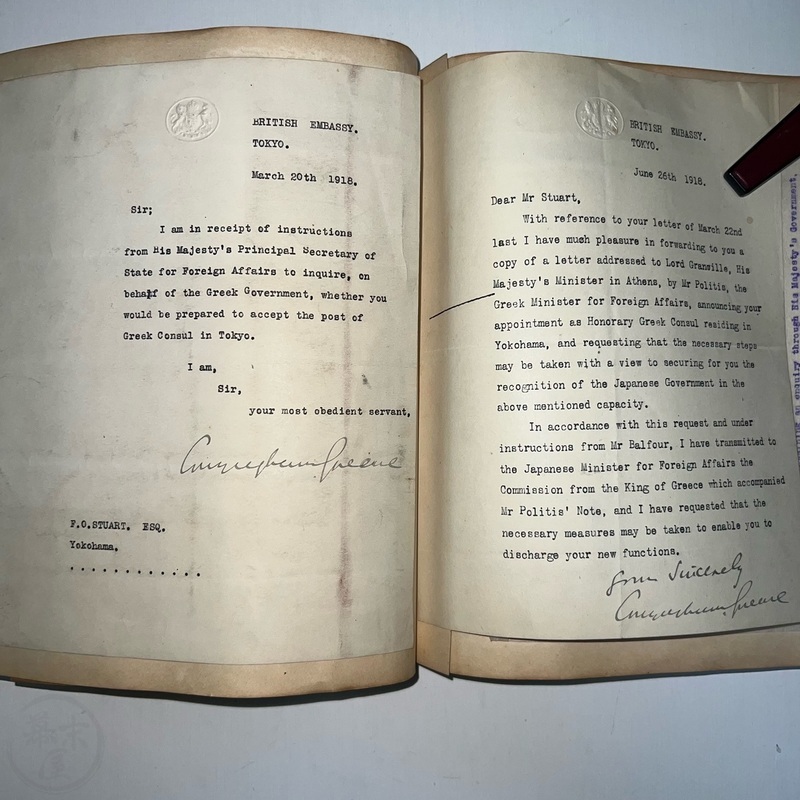 BRITISH EMBASSY.
TOKYO.
March 20th 1918.
Sir;
I am in receipt of instructions
from His Majesty's Principal Secretary of
State for Foreign Affairs to inquire, on
behalf of the Greek Government, whether you
would be prepared to accept the post of
Greek Consul in Tokyo.
I am,
Sir,
your most obedient servant,
Conyngham Greene
F.O.STUART. ESQ.
Yokohama.
............
BRITISH EMBASSY.
TOKYO.
June 26th 1918.
Dear Mr Stuart,
With reference to your letter of March 22nd
last I have much pleasure in forwarding to you a
copy of a letter addressed to Lord Granville, His
Majesty's Minister in Athens, by Mr Politis, the
Greek Minister for Foreign Affairs, announcing your
appointment as Honorary Greek Consul residing in
Yokohama, and requesting that the necessary steps
may be taken with a view to securing for you the
recognition of the Japanese Government in the
above mentioned capacity.
In accordance with this request and under
instructions from Mr Balfour, I have transmitted to
the Japanese Minister for Foreign Affairs the
Commission from the King of Greece which accompanied
Mr Politis' Note, and I have requested that the
necessary measures may be taken to enable you to
discharge your new functions.
Yours Sincerely
Conyngham Greene
an enquiry through His Majesty's Government.